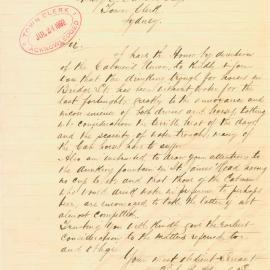 Town Clerk
Sydney.
TOWN CLERK
JUL 21 1892
ACKNOWLEDGED
Sir
I have the Honor, by direction
of the Cabmen's Union, to kindly inform
you that the drinking trough for horses in
Bridge St has been without water for the
last fortnight, greatly to the annoyance and
inconvenience of both drivers and horses, taking
into consideration the terrible heat of the day
and the scarcity of water troughs, many of
the Cab horses have to suffer.
Also am instructed to draw your attention to
the drinking fountain in St James Road having
no cup to it, and that those of the Cabmen
who would drink water in preference to perhaps
beer, are encouraged to take the latter if not
almost compelled.
Trusting you will kindly give the Earliest
Consideration to the matters referred to
and oblige
Your most obedient Servant